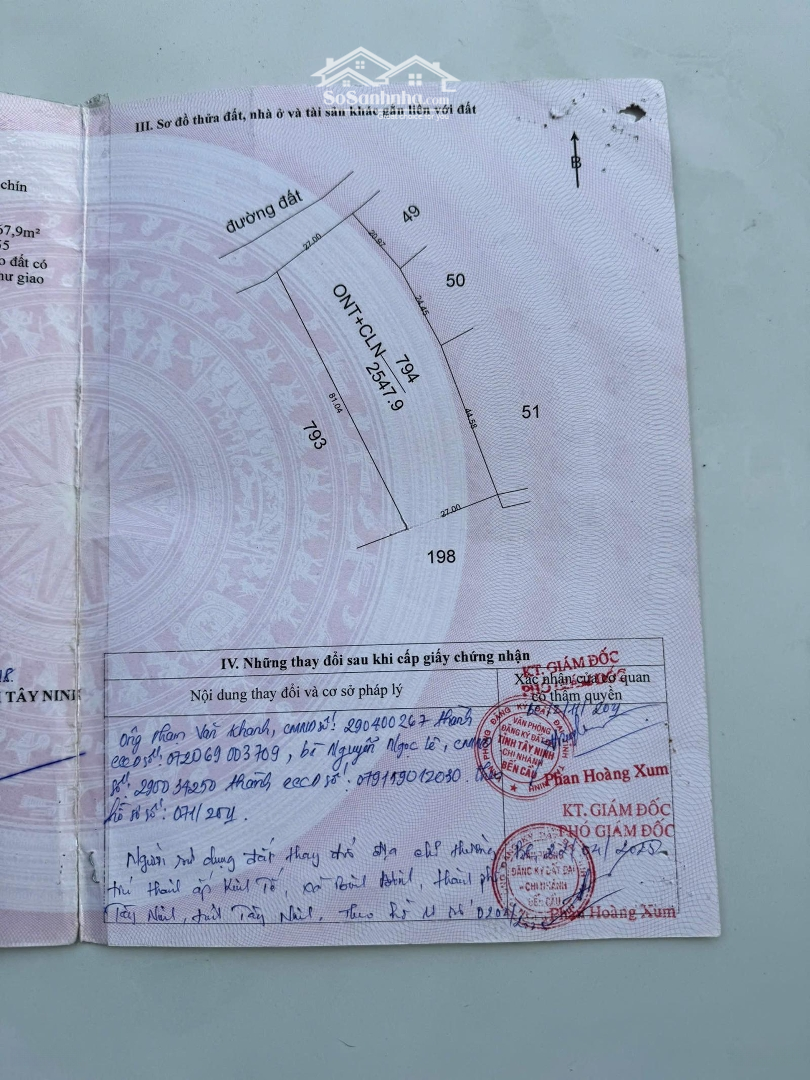 SoSanhnha.com
III. Sơ đồ thửa đất, nhà ở và tài sản khác gắn liền với đất
chín
67,9m²
55
o đất có
hư giao
B
đường đất
27.00
20.97
49
50
24.45
ONT+CLN
794
2547.9
81.04
793
44.58
51
27.00
198
TÂY NINH
IV. Những thay đổi sau khi cấp giấy chứng nhận
Nội dung thay đổi và cơ sở pháp lý
Xác nhận của cơ quan
có thẩm quyền
KT. GIÁM ĐỐC
PHÓ GIÁM ĐỐC
Ông Phạm Văn Khanh, CMND số: 290400267 thành
CCCD số: 072069003709, bà Nguyễn Ngọc Lê, CMND
số: 290034250 thành CCCD số: 079159012030. Theo
hồ sơ số: 071/
VĂN PHÒNG
ĐĂNG KÝ ĐẤT ĐAI
TỈNH TÂY NINH
CHI NHÁNH
BẾN CẦU
Phan Hoàng Xum
KT. GIÁM ĐỐC
PHÓ GIÁM ĐỐC
Người sử dụng đất thay đổi địa chỉ thường
trú thành ấp Kinh Tế, xã Bình Minh, thành phố
Tây Ninh, tỉnh Tây Ninh. Theo hồ sơ số
ĐĂNG KÝ ĐẤT ĐAI
CHI NHÁNH
BẾN CẦU
Phan Hoàng Xum